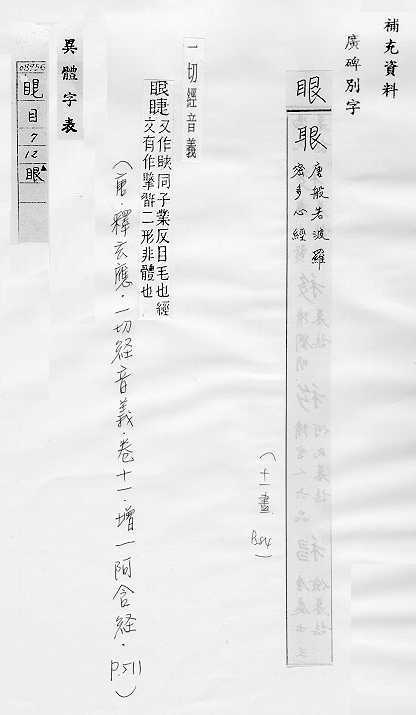 補充資料
廣碑別字
眼
眼
唐般若波羅
密多心經
(十一畫 P.54)
一切經音義
眼睫又作䀹同子業反目毛也經
文有作二形非體也
(唐.釋玄應.一切経音義.卷十一.增一阿含経.P.511)
異體字表
08956
目
7
12
眼